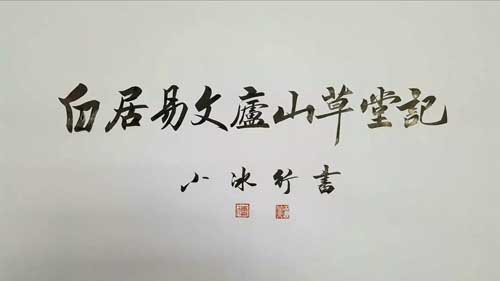 白居易文廬山草堂記
小冰行書